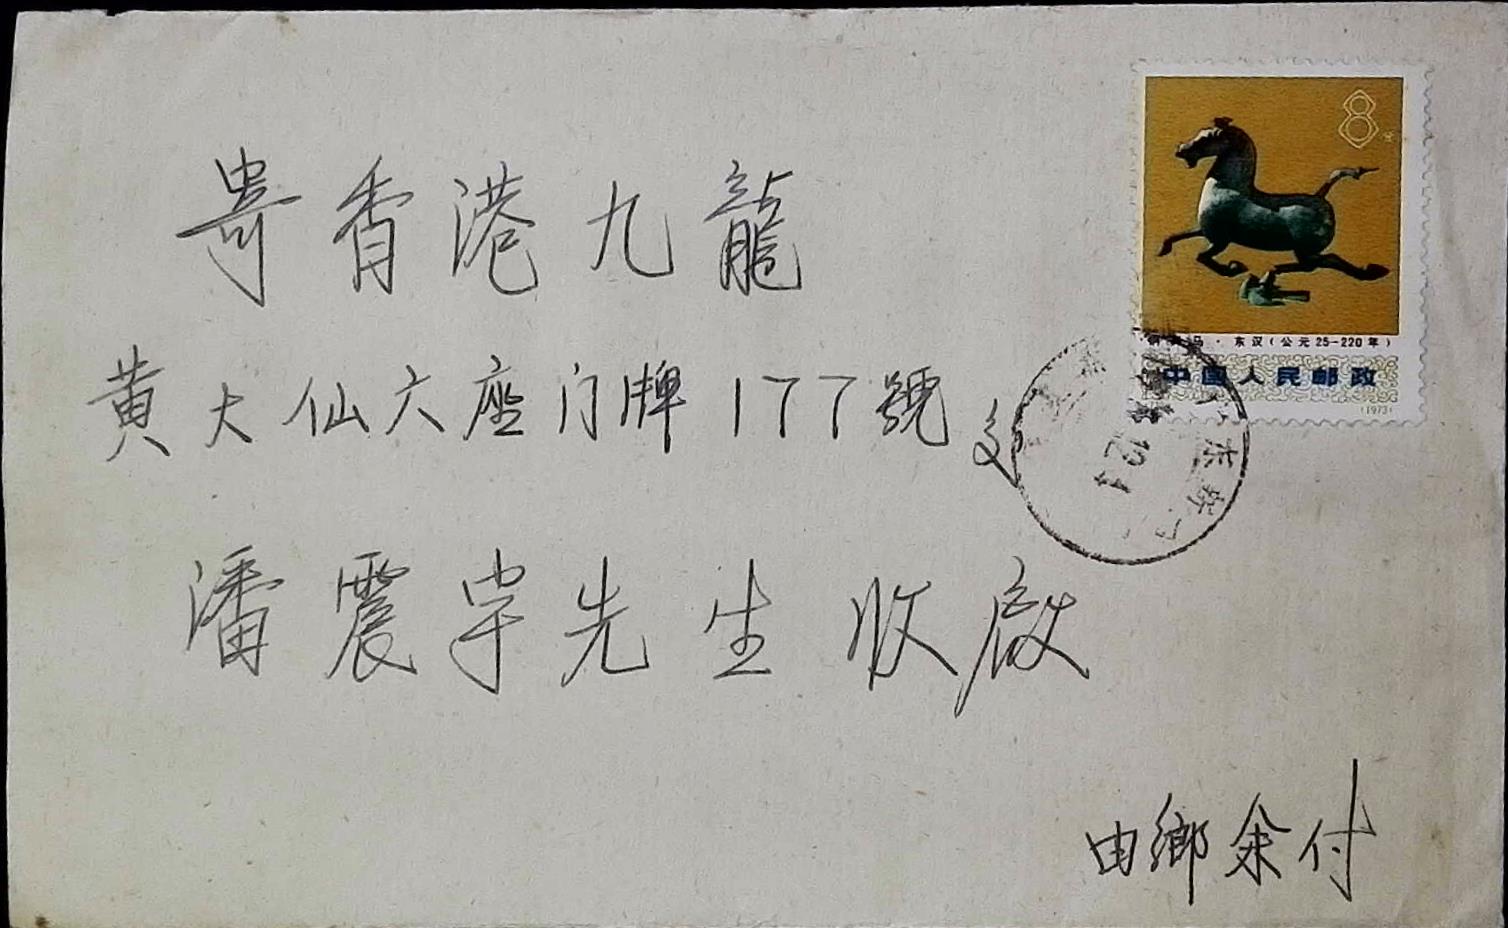 寄香港九龍
黄大仙六座门牌177號 交
潘震宇先生收啟
由鄉余付
8分
铜奔马·东汉(公元25-220年)
中国人民邮政
(1973)
东 12.4